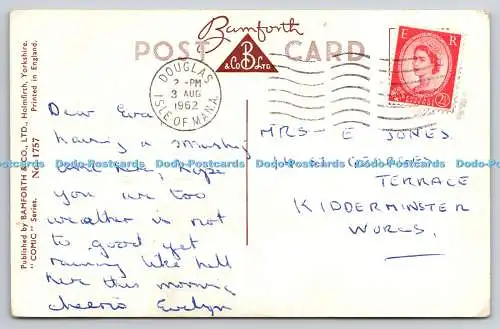 Bamforth
POST CARD
B
& Co LTD
DOUGLAS
2 - PM
3 AUG
1962
ISLE OF MAN. A.
E R
2½
Published by BAMFORTH & CO., LTD., Holmfirth, Yorkshire.
"COMIC" Series. No. 1757 Printed in England.
Dear Eva
having a smashing
time here, hope
you are too
weather is not
to good yet
raining like hell
here this morning
cheerio Evelyn
MRS - E JONES
GEORGES
TERRACE
KIDDERMINSTER
WORCS,
Dodo-Postcards Dodo-Postcards Dodo-Postcards Dodo-Postcards Dodo-Postcards